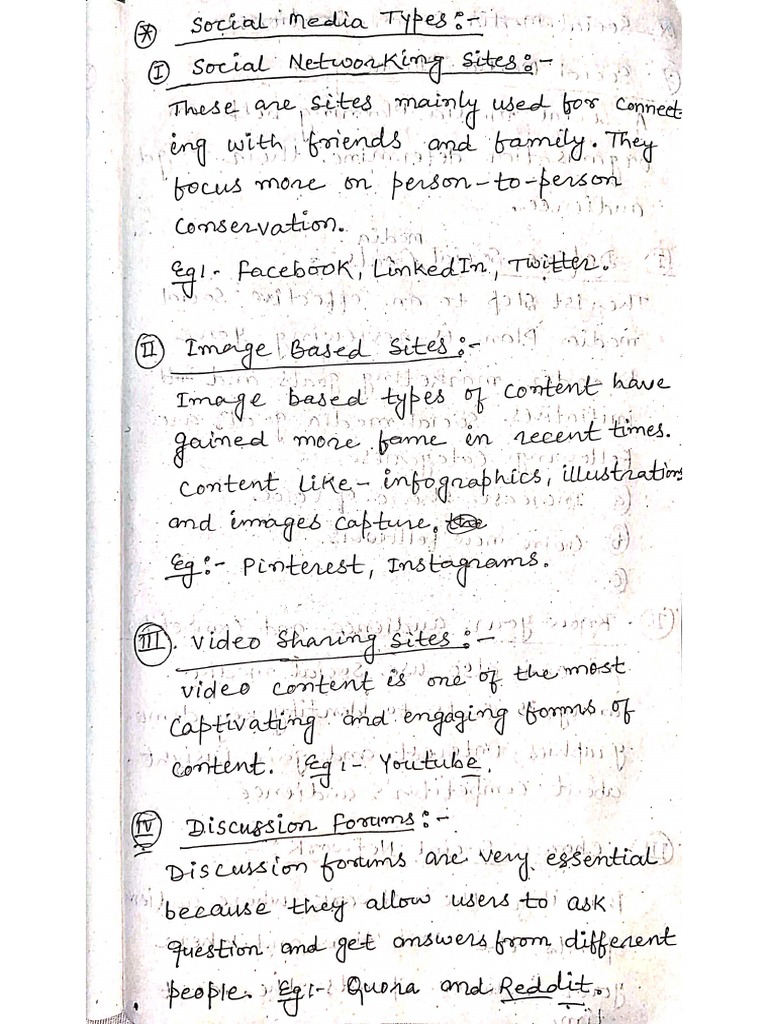 * Social Media Types:-
I Social Networking Sites:-
These are sites mainly used for connect-
ing with friends and family. They
focus more on person-to-person
conservation.
Eg:- Facebook, LinkedIn, Twitter.
II Image Based Sites:-
Image based types of content have
gained more fame in recent times.
Content like - infographics, illustrations
and images capture.
Eg:- Pinterest, Instagrams.
III. Video Sharing Sites:-
Video content is one of the most
captivating and engaging forms of
content. Eg:- Youtube.
IV Discussion Forums:-
Discussion forums are very essential
because they allow users to ask
question and get answers from different
people. Eg:- Quora and Reddit.